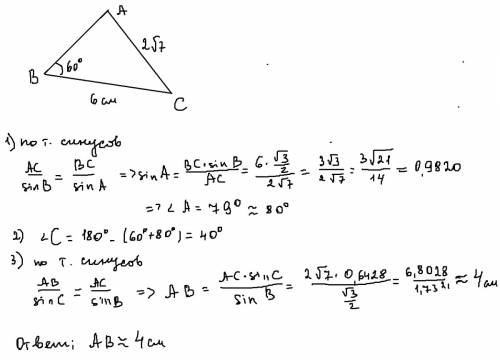 A
2√7
B 60°
6 см
C
1) по т. синусов
AC/sinB = BC/sinA => sinA = BC·sinB/AC = 6·(√3/2)/2√7 = 3√3/2√7 = 3√21/14 = 0,9820
=> ∠A = 79° ≈ 80°
2) ∠C = 180° - (60°+80°) = 40°
3) по т. синусов
AB/sinC = AC/sinB => AB = AC·sinC/sinB = 2√7·0,6428/(√3/2) = 6,8028/1,732 ≈ 4 см
Ответ; AB ≈ 4 см